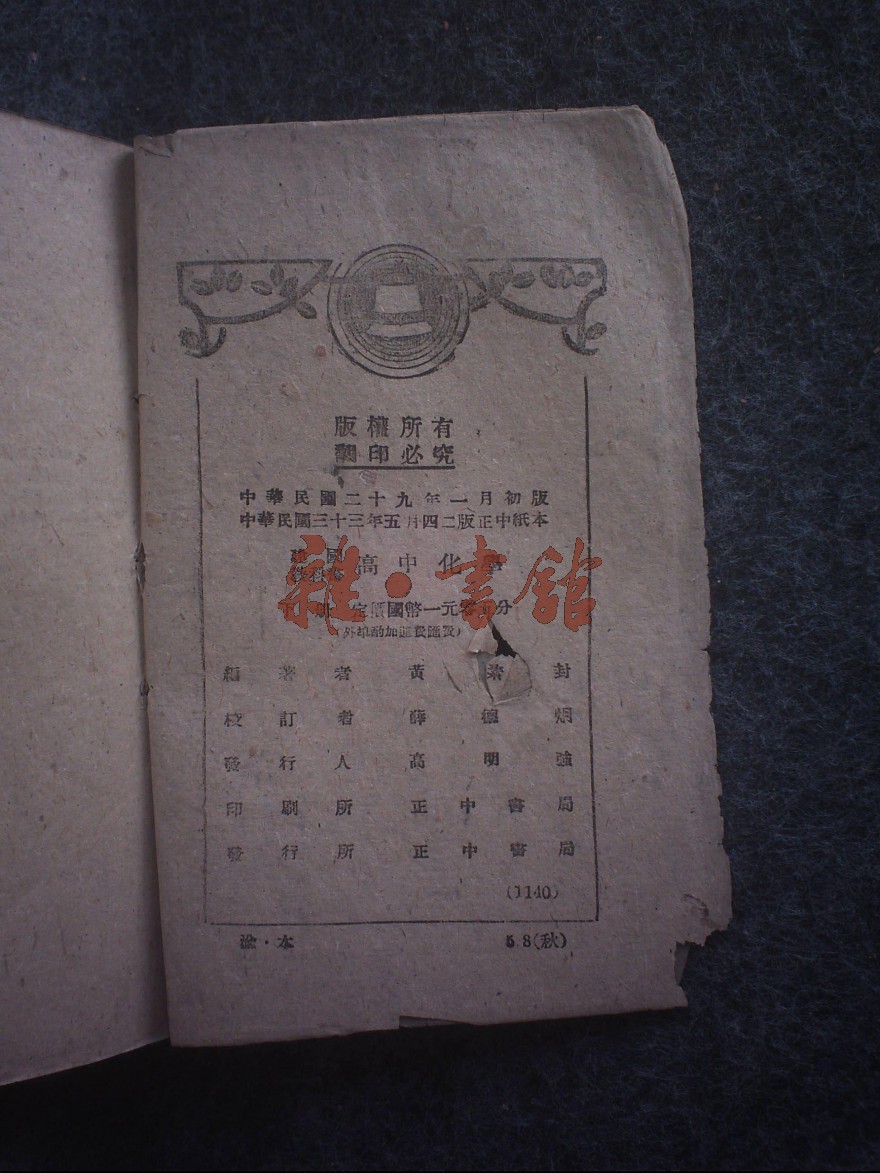 版權所有
翻印必究
中華民國二十九年一月初版
中華民國三十三年五月四二版正中紙本
高中化學
雜·書館
下冊 定價國幣一元零五分
(外埠酌加運費匯費)
編著者 黃素封
校訂者 薛德烱
發行人 高明強
印刷所 正中書局
發行所 正中書局
(1140)
渝·本 5.8(秋)